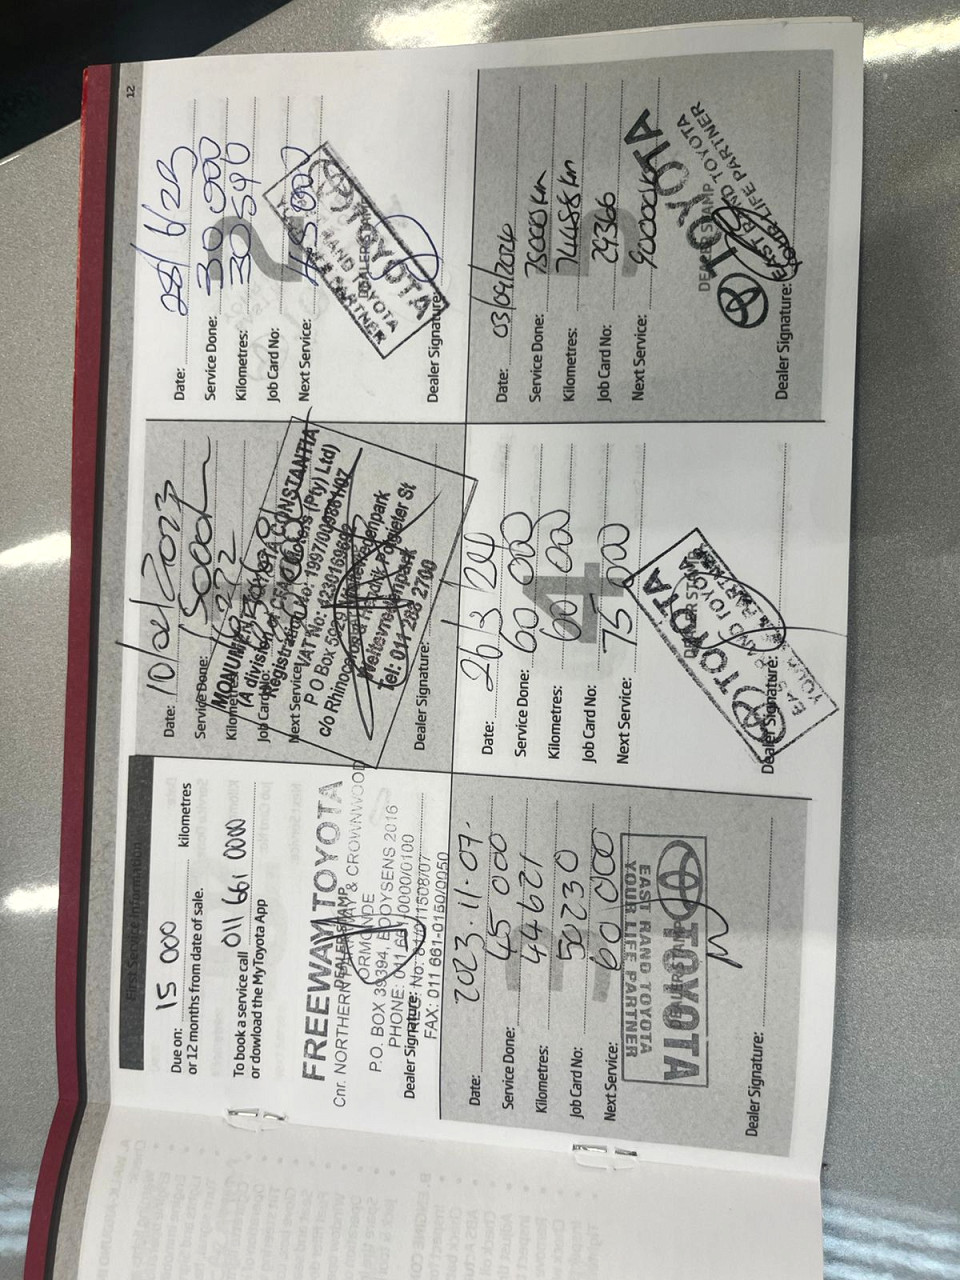 12
First Service Information
Due on: 15 000 kilometres
or 12 months from date of sale.
To book a service call 011 661 0000
or dowload the MyToyota App
FREEWAY TOYOTA
DEALER STAMP
Cnr. NORTHERN PARKWAY & CROWNWOOD
ORMONDE
P.O. BOX 39394, BOOYSENS 2016
PHONE: 011 661-0000/0100
Dealer Signature:
FAX: 011 661-0150/0050
Date: 10/02/2023
Service Done: 15000
Kilometres:
Job Card No:
Next Service:
MONUMENT TOYOTA CONSTANTIA
(A division of CFAO Motors (Pty) Ltd)
VAT No:
P O Box
Weltevredenpark
Tel: 011 288 2700
Dealer Signature:
Date: 28/6/23
Service Done: 30 000
Kilometres: 30 590
Job Card No:
2
Next Service: 45 000
DEALER STAMP
TOYOTA
EAST RAND TOYOTA
YOUR LIFE PARTNER
Dealer Signature:
Date: 2023.11.07.
Service Done: 45 000
Kilometres: 44621
Job Card No: 50230
Next Service: 60 000
TOYOTA
EAST RAND TOYOTA
YOUR LIFE PARTNER
Dealer Signature:
Date: 26/3/24
Service Done: 60 000
Kilometres: 60 000
4
Job Card No:
Next Service: 75 000
DEALER STAMP
TOYOTA
EAST RAND TOYOTA
YOUR LIFE PARTNER
Dealer Signature:
Date: 03/09/2024
Service Done: 75000km
Kilometres: 74488km
Job Card No: 29366
Next Service: 90000km
DEALER STAMP
TOYOTA
EAST RAND TOYOTA
YOUR LIFE PARTNER
Dealer Signature: